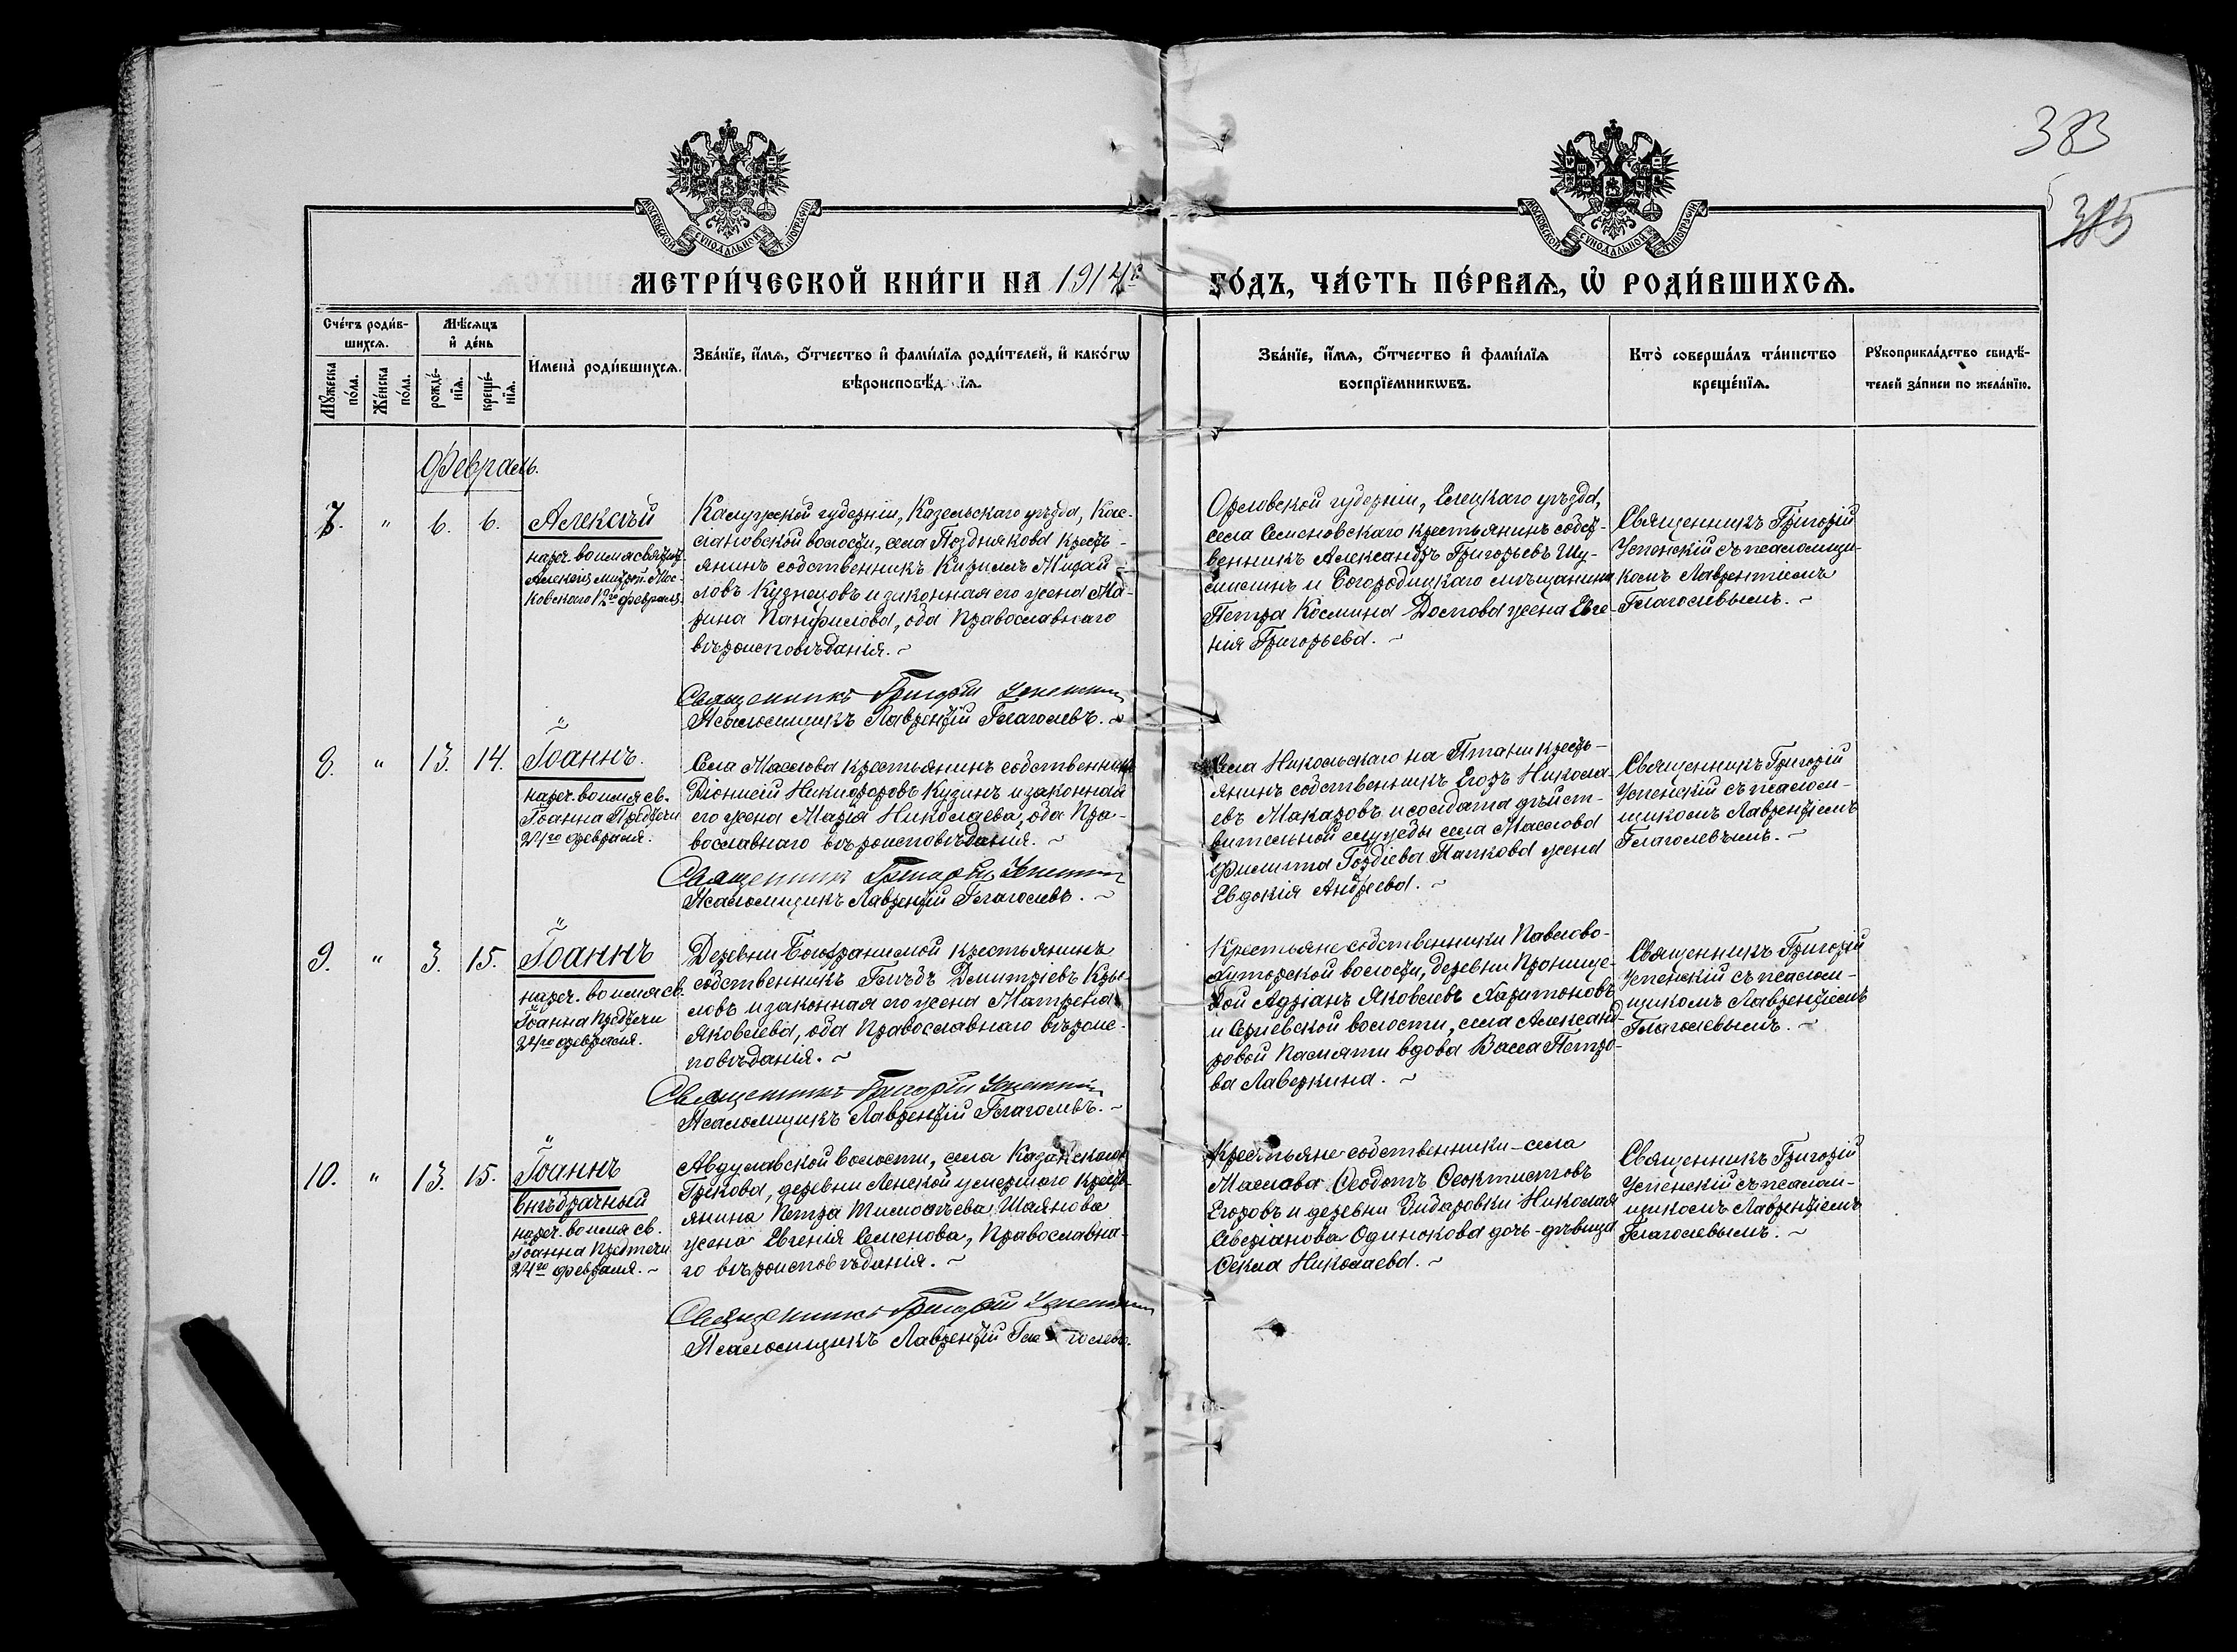 383
385
МОСКОВСКОЙ СѴНОДАЛЬНОЙ ТИПОГРАФІИ
МОСКОВСКОЙ СѴНОДАЛЬНОЙ ТИПОГРАФІИ
МЕТРИ́ЧЕСКОЙ КНИ́ГИ НА 1914й ГО́ДЪ, ЧА́СТЬ ПЕ́РВАѦ, Ѡ҆ РОДИ́ВШИХСѦ.
Сче́тъ роди́в-
шихсѧ.
Мѣ́сѧцъ
и҆ де́нь
Мꙋ́жеска
по́ла.
Же́нска
по́ла.
рожде́-
нїѧ.
креще́-
нїѧ.
И҆мена̀ роди́вшихсѧ.
Зва́нїе, и҆́мѧ, ѻ҆́тчество и҆ фами́лїѧ роди́телей, и҆ како́гѡ
вѣроисповѣ́данїѧ.
Зва́нїе, и҆́мѧ, ѻ҆́тчество и҆ фами́лїѧ
воспрїе́мникѡвъ.
Кто̀ соверша́лъ та́инство
креще́нїѧ.
Рꙋкоприкла́дство свидѣ́-
телей за́писи по жела́нїю.
Февраль.
7. " 6. 6. Алексѣй
нареч. во имя святит.
Алексія митроп. Мос-
ковскаго 12го февраля.
Калужской губерніи, Козельскаго уѣзда, Кос-
лановской волости, села Позднякова кресть-
янинъ собственникъ Кириллъ Михай-
ловъ Кузнецовъ и законная его жена Ма-
рина Панфилова, оба Православнаго
вѣроисповѣданія.
Священникъ Григорій Успенскій
Псаломщикъ Лаврентій Глаголевъ.
Орловской губерніи, Елецкаго уѣзда,
села Семеновскаго крестьянинъ собст-
венникъ Александръ Григорьевъ
и Богородицкаго мѣщанина
Петра Космина жена Евге-
нія Григорьева.
Священникъ Григорій
Успенскій съ псаломщи-
комъ Лаврентіемъ
Глаголевымъ.
8. " 13. 14. Іоаннъ.
нареч. во имя св.
Іоанна Предтечи
24го февраля.
Села Маслова крестьянинъ собственникъ
Діонисій Никифоровъ Кузинъ и законная
его жена Марія Николаева, оба Пра-
вославнаго вѣроисповѣданія.
Священникъ Григорій Успенскій
Псаломщикъ Лаврентій Глаголевъ.
Села Никольскаго на Птани кресть-
янинъ собственникъ Егоръ Никола-
евъ Макаровъ и солдата дѣйст-
вительной службы села Маслова
Филиппа Гордіева Папкова жена
Евдокія Андреева.
Священникъ Григорій
Успенскій съ псалом-
щикомъ Лаврентіемъ
Глаголевымъ.
9. " 3. 15. Іоаннъ
нареч. во имя св.
Іоанна Предтечи
24го февраля.
Деревни крестьянинъ
собственникъ Глѣбъ Димитріевъ Кры-
ловъ и законная его жена Матрена
Яковлева, оба Православнаго вѣроис-
повѣданія.
Священникъ Григорій Успенскій
Псаломщикъ Лаврентій Глаголевъ.
Крестьяне собственники Павлово-
хуторской волости, деревни Пронище-
вой Адріанъ Яковлевъ Харитоновъ
и Сергіевской волости, села Александ-
ровой Памяти вдова Васса Петро-
ва Лаверкина.
Священникъ Григорій
Успенскій съ псалом-
щикомъ Лаврентіемъ
Глаголевымъ.
10. " 13. 15. Іоаннъ
внѣбрачный
нареч. во имя св.
Іоанна Предтечи
24го февраля.
Авдулавской волости, села Казанскаго
Грекова, деревни Ленской умершаго кресть-
янина Петра Тимофѣева Шаянова
жена Евгенія Семенова, Православна-
го вѣроисповѣданія.
Священникъ Григорій Успенскій
Псаломщикъ Лаврентій Глаголевъ.
Крестьяне собственники села
Маслова Ѳеодотъ Ѳеоктистовъ
Егоровъ и деревни Зибаровки Николая
Аверіанова Одинокова дочь-дѣвица
Ѳекла Николаева.
Священникъ Григорій
Успенскій съ псалом-
щикомъ Лаврентіемъ
Глаголевымъ.